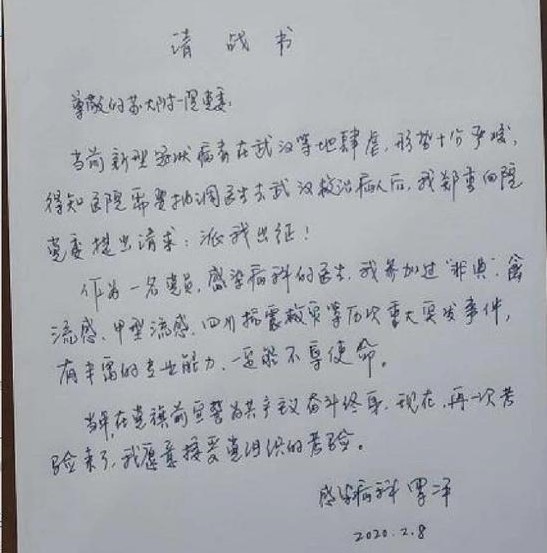 请战书
尊敬的苏大附一院党委:
当前新型冠状病毒在武汉等地肆虐,形势十分严峻,
得知医院需要抽调医生去武汉救治病人后,我郑重向院
党委提出请求:派我出征!
作为一名党员,感染病科的医生,我参加过“非典”、禽
流感、甲型流感、四川抗震救灾等历次重大突发事件,
有丰富的专业能力,一定能不辱使命。
当年,在党旗前宣誓为共产主义奋斗终身,现在,再一次考
验来了,我愿意接受党组织的考验。
感染病科
2020.2.8